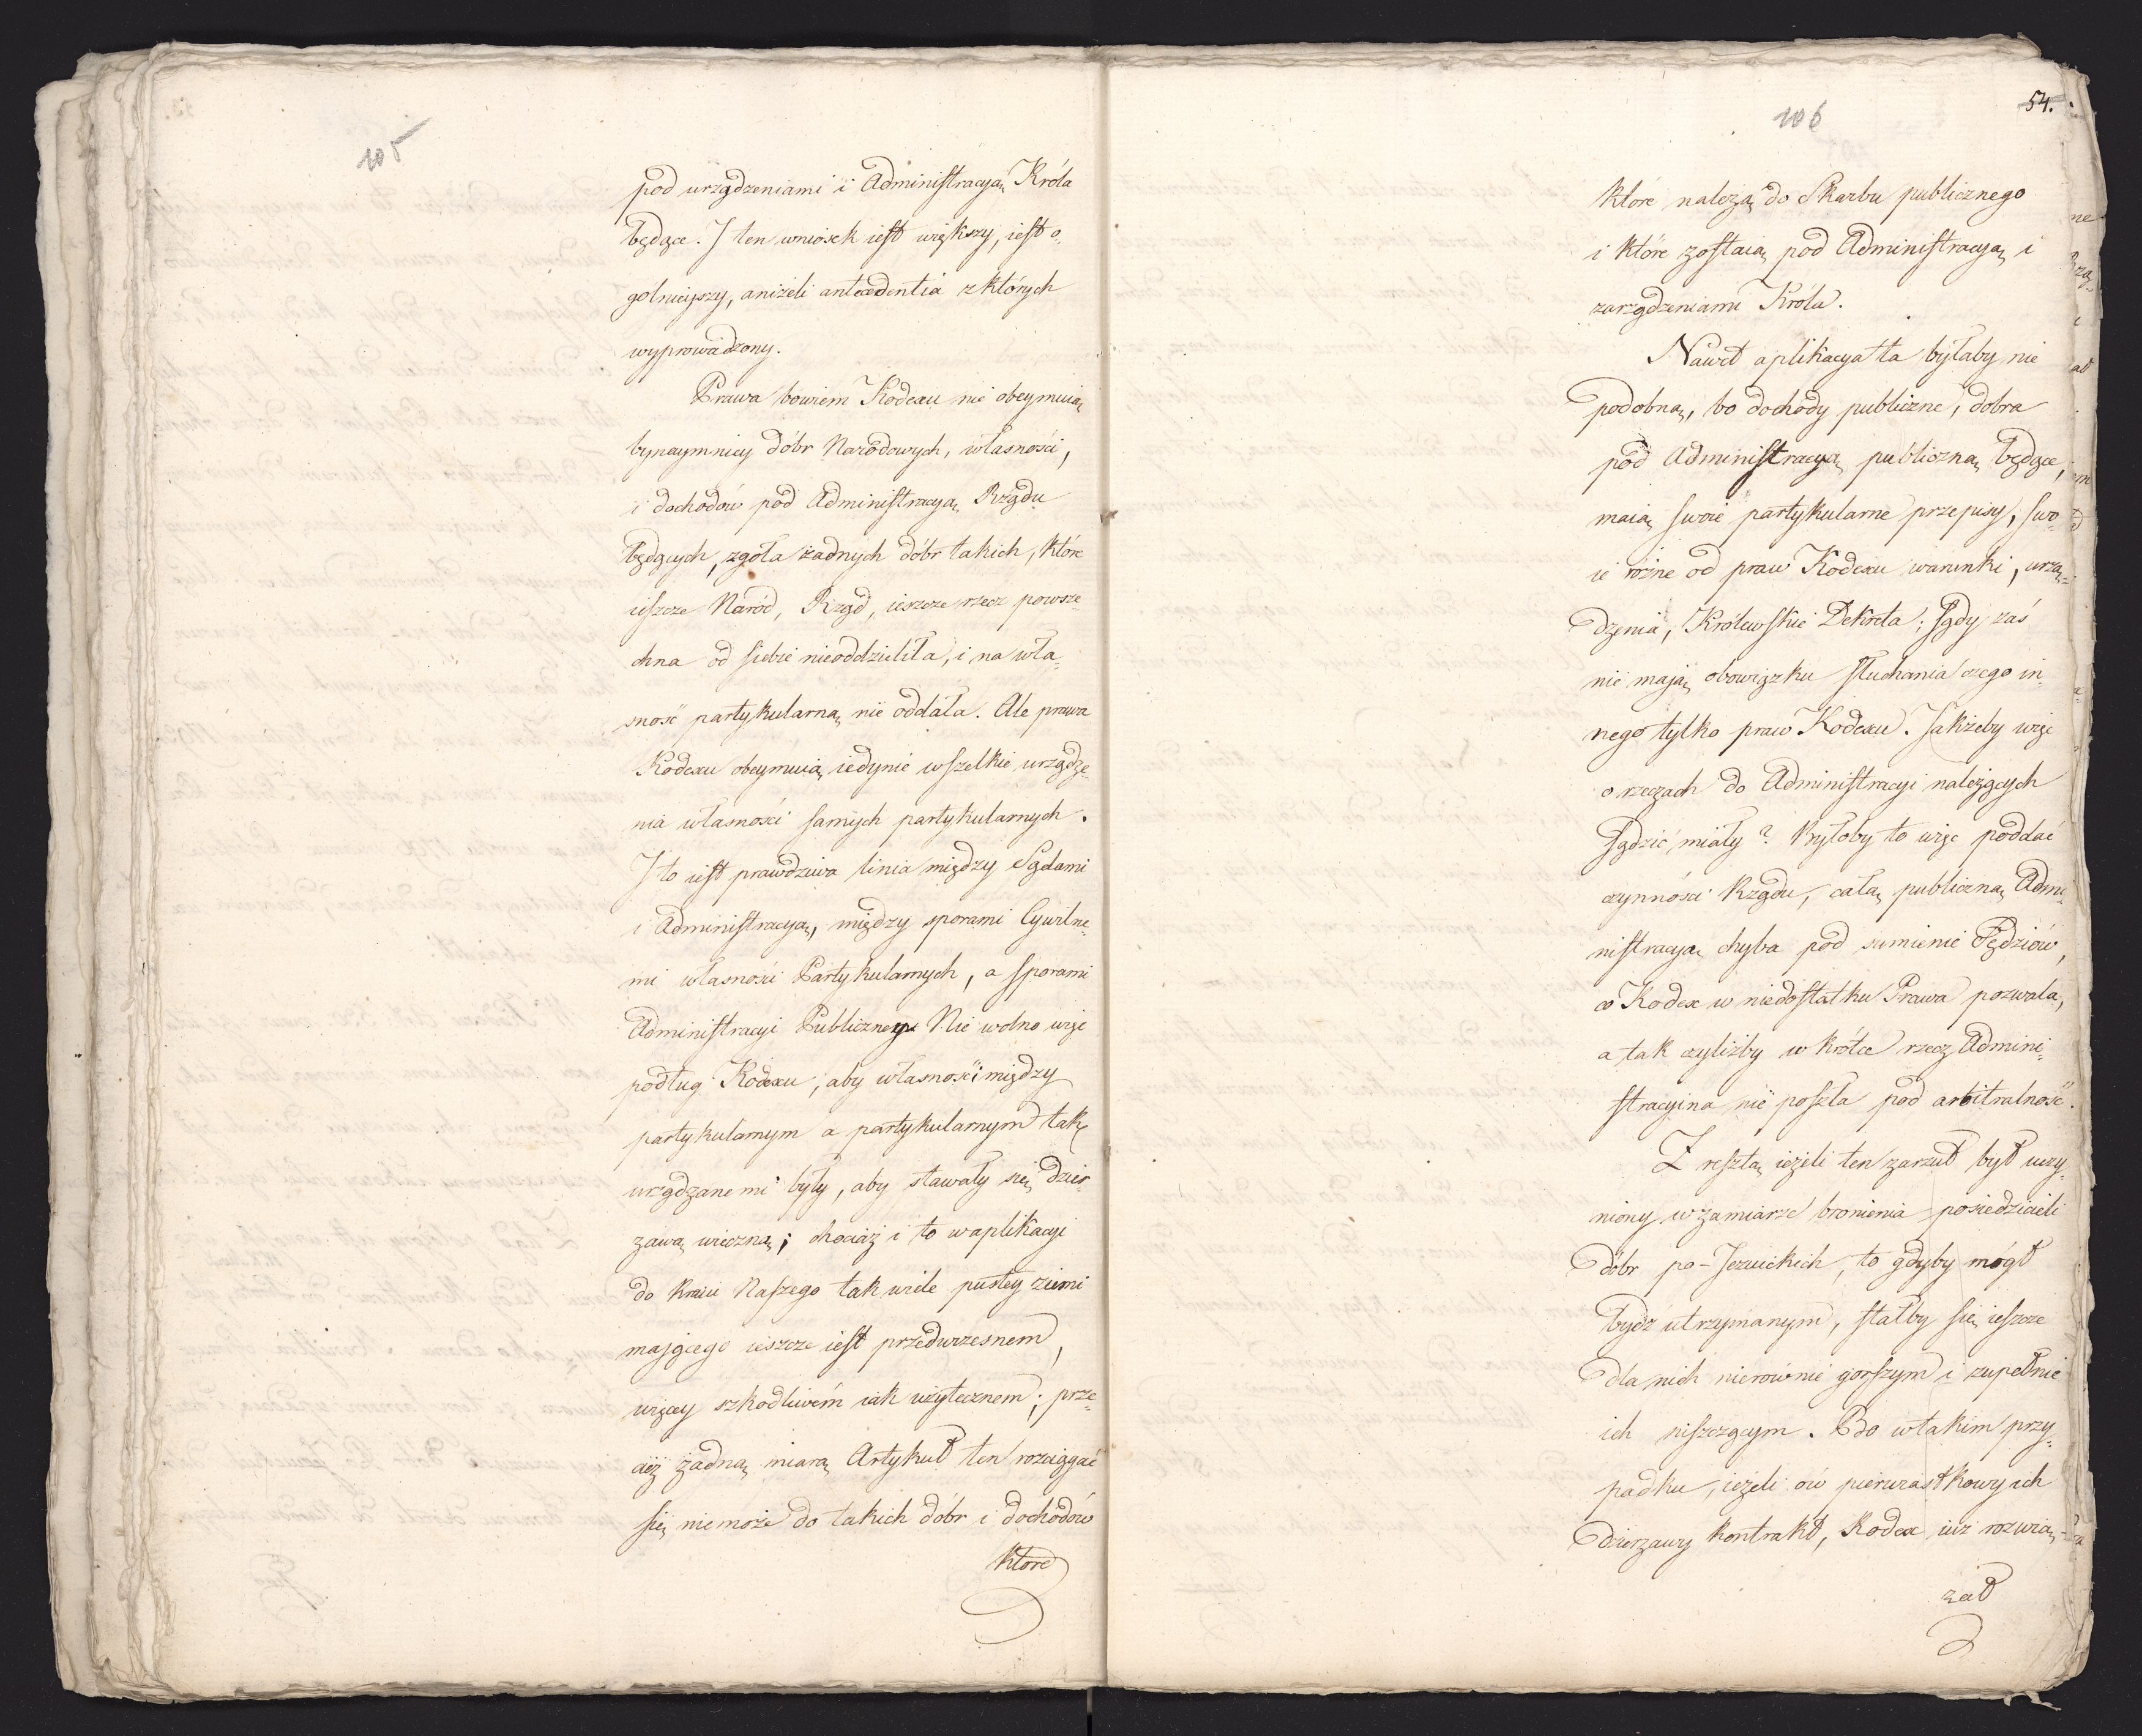 105
pod urządzeniami i Administracyą Króla
będące. I ten wniosek iest większy, iest o„
golnieyszy, aniżeli antecedentia z których
wyprowadzony.
Prawa bowiem Kodexu nie obeymuią
bynaymniey dóbr Narodowych, własności,
i dochodów pod Administracyą Rządu
będących, zgoła żadnych dóbr takich, które
ieszcze Naród, Rząd, ieszcze rzecz powsze„
chna od siebie nieoddzieliła, i na wła„
sność partykularną nie oddała. Ale prawa
Kodexu obeymuią iedynie wszelkie urządze„
nia własności samych partykularnych.
I to iest prawdziwa linia między Sądami
i Administracyą, między sporami Cywilne„
mi własności Partykularnych, a sporami
Administracyi Publiczney. Nie wolno więc
podług Kodexu, aby własności między
partykularnym a partykularnym tak
urządzanemi były, aby stawały się dzier„
żawą wieczną; chociaż i to w aplikacyi
do kraiu Naszego tak wiele pustey ziemi
mającego ieszcze iest przedwczesnem,
więcey szkodliwém iak użytecznem; prze„
cież żadną miarą Artykuł ten rozciągać
się niemoże do takich dóbr i dochodów
które
106
54.
które należą do Skarbu publicznego
i które zostaią pod Administracyą i
zarządzeniami Króla.
Nawet aplikacya ta byłaby nie
podobną, bo dochody publiczne, dobra
pod Administracyą publiczną będące,
maią swoie partykularne przepisy, swo„
ie różne od praw Kodexu warunki, urzą„
dzenia, Królewskie Dekreta; Sądy zaś
nie mają obowiązku słuchania czego in„
nego tylko praw Kodexu. Jakżeby więc
o rzeczach do Administracyi należących
sądzić miały? Byłoby to więc poddać
czynności Rządu, całą publiczną Admi„
nistracyą chyba pod sumienie Sędziów,
co Kodex w niedostatku Prawa pozwala,
a tak czyliżby w krótce rzecz Admini„
stracyina nie poszła pod arbitralność.
Z resztą ieżeli ten zarzut był uczy„
niony w zamiarze bronienia posiedzicieli
dóbr po-Jezuickich, to gdyby mógł
bydź utrzymanym, stałby się ieszcze
dla nich nierównie gorszym i zupełnie
ich niszczącym. Bo w takim przy„
padku, ieżeli ów pierwiastkowy ich
dzierżawy kontrakt, Kodex iuż rozwią„
zał